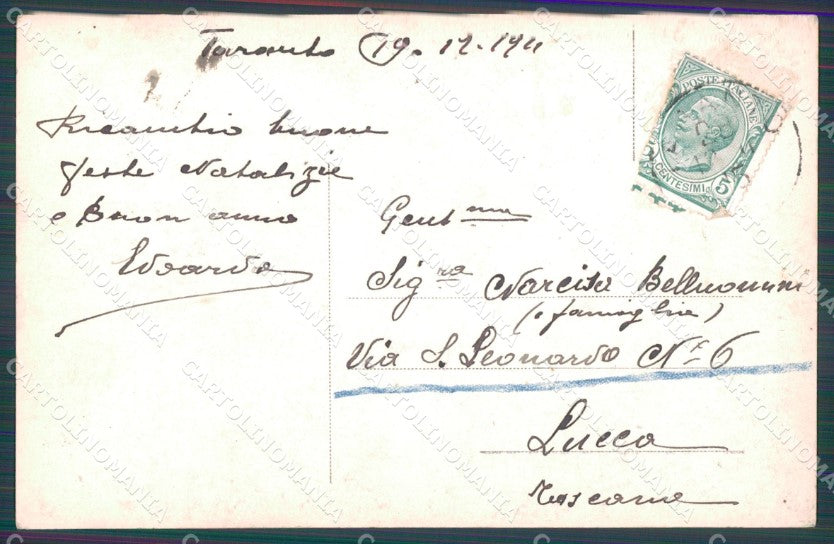 Taranto 19-12-1911
Ricambio buone
feste Natalizie
e Buon anno
Edoardo
POSTE ITALIANE
CENTESIMI 5
Gent.ma
Sig.ra Narcisa Bellomini
(e famiglia)
Via S. Leonardo N.º 6
Lucca
Toscana
CARTOLINOMANIA